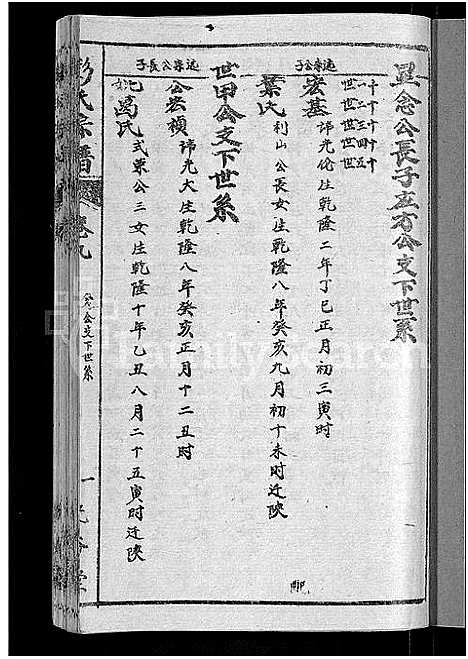 念公長子应方公支下世系
十一世
十二世
十三世
十四世
十五世
公子
宏基 讳光伦生乾隆二年丁巳正月初三寅时
葉氏 利山公長女生乾隆八年癸亥九月初十未时迁陕
世甲公支下世系
公長子
公宏祯 讳光大生乾隆八年癸亥正月十二丑时
妣葛氏 式東公三女生乾隆十年乙丑八月二十五寅时迁陕
彭氏宗譜
卷九
公支下世系
一
FamilySearch